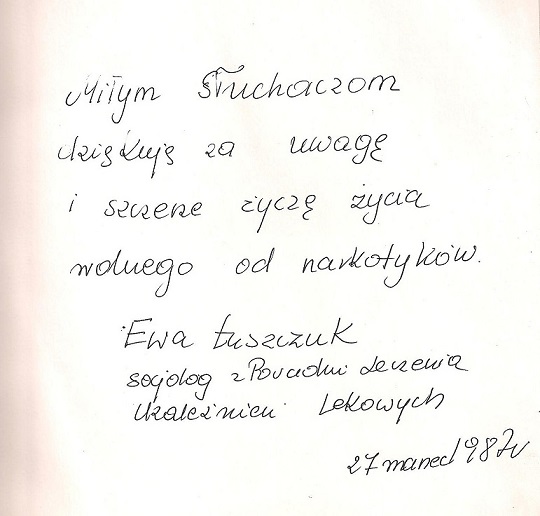 Miłym Słuchaczom
dziękuję za uwagę
i szczerze życzę życia
wolnego od narkotyków.
Ewa Łuszczuk
socjolog z Poradni Leczenia
Uzależnień Lekowych
27 marzec 1987r